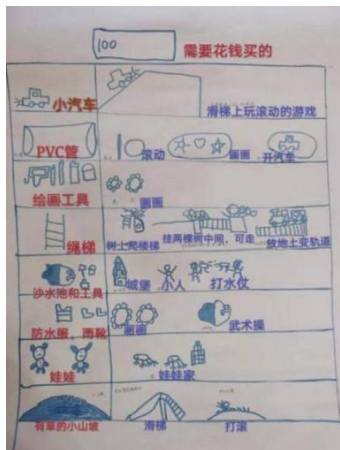 100
需要花钱买的
小汽车
滑梯上玩滚动的游戏
PVC管
滚动
画画
开汽车
绘画工具
画画
绳梯
树上爬楼梯
挂两棵树中间，可走
放地上变轨道
沙水池和工具
城堡
小人
打水仗
防水服，雨靴
画画
武术操
娃娃
娃娃家
有草的小山坡
滑梯
打滚